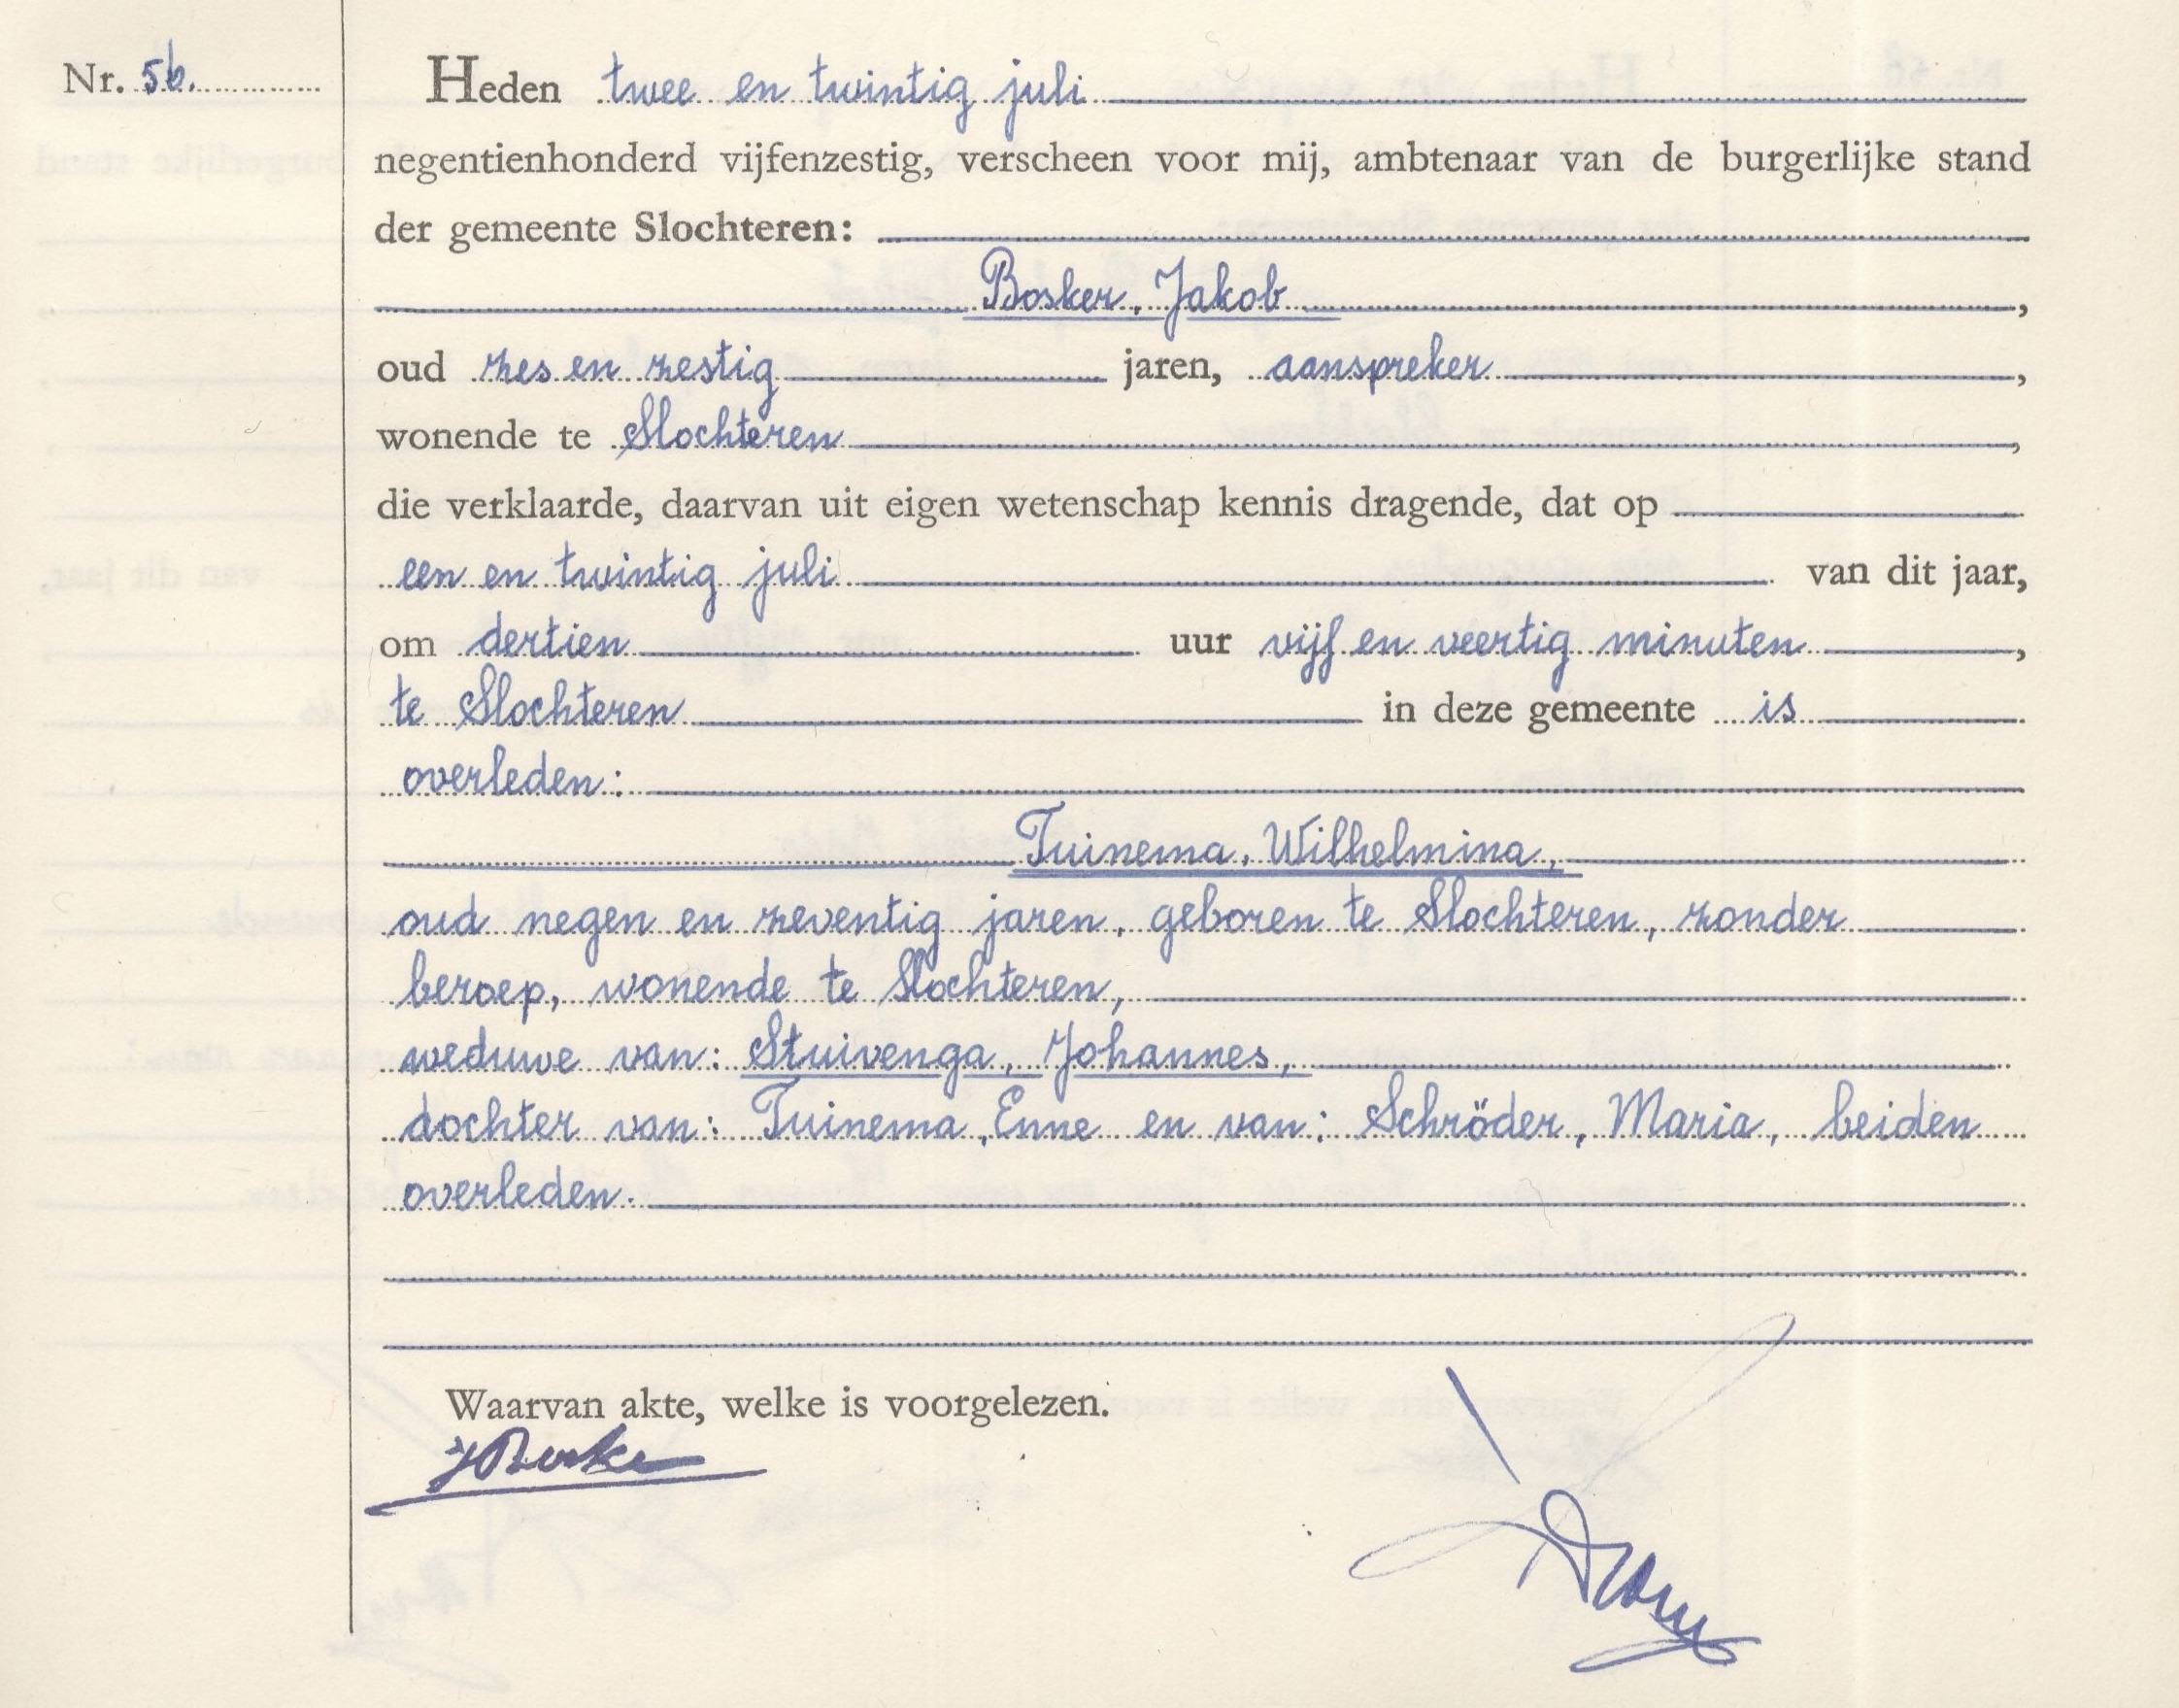 Nr. 56.
Heden twee en twintig juli
negentienhonderd vijfenzestig, verscheen voor mij, ambtenaar van de burgerlijke stand
der gemeente Slochteren:
Bosker, Jakob,
oud zes en zestig jaren, aanspreker,
wonende te Slochteren,
die verklaarde, daarvan uit eigen wetenschap kennis dragende, dat op
een en twintig juli van dit jaar,
om dertien uur vijf en veertig minuten,
te Slochteren in deze gemeente is
overleden:
Tuinema, Wilhelmina,
oud negen en zeventig jaren, geboren te Slochteren, zonder
beroep, wonende te Slochteren,
weduwe van: Stuivenga, Johannes,
dochter van: Tuinema, Enne en van: Schröder, Maria, beiden
overleden.
Waarvan akte, welke is voorgelezen.